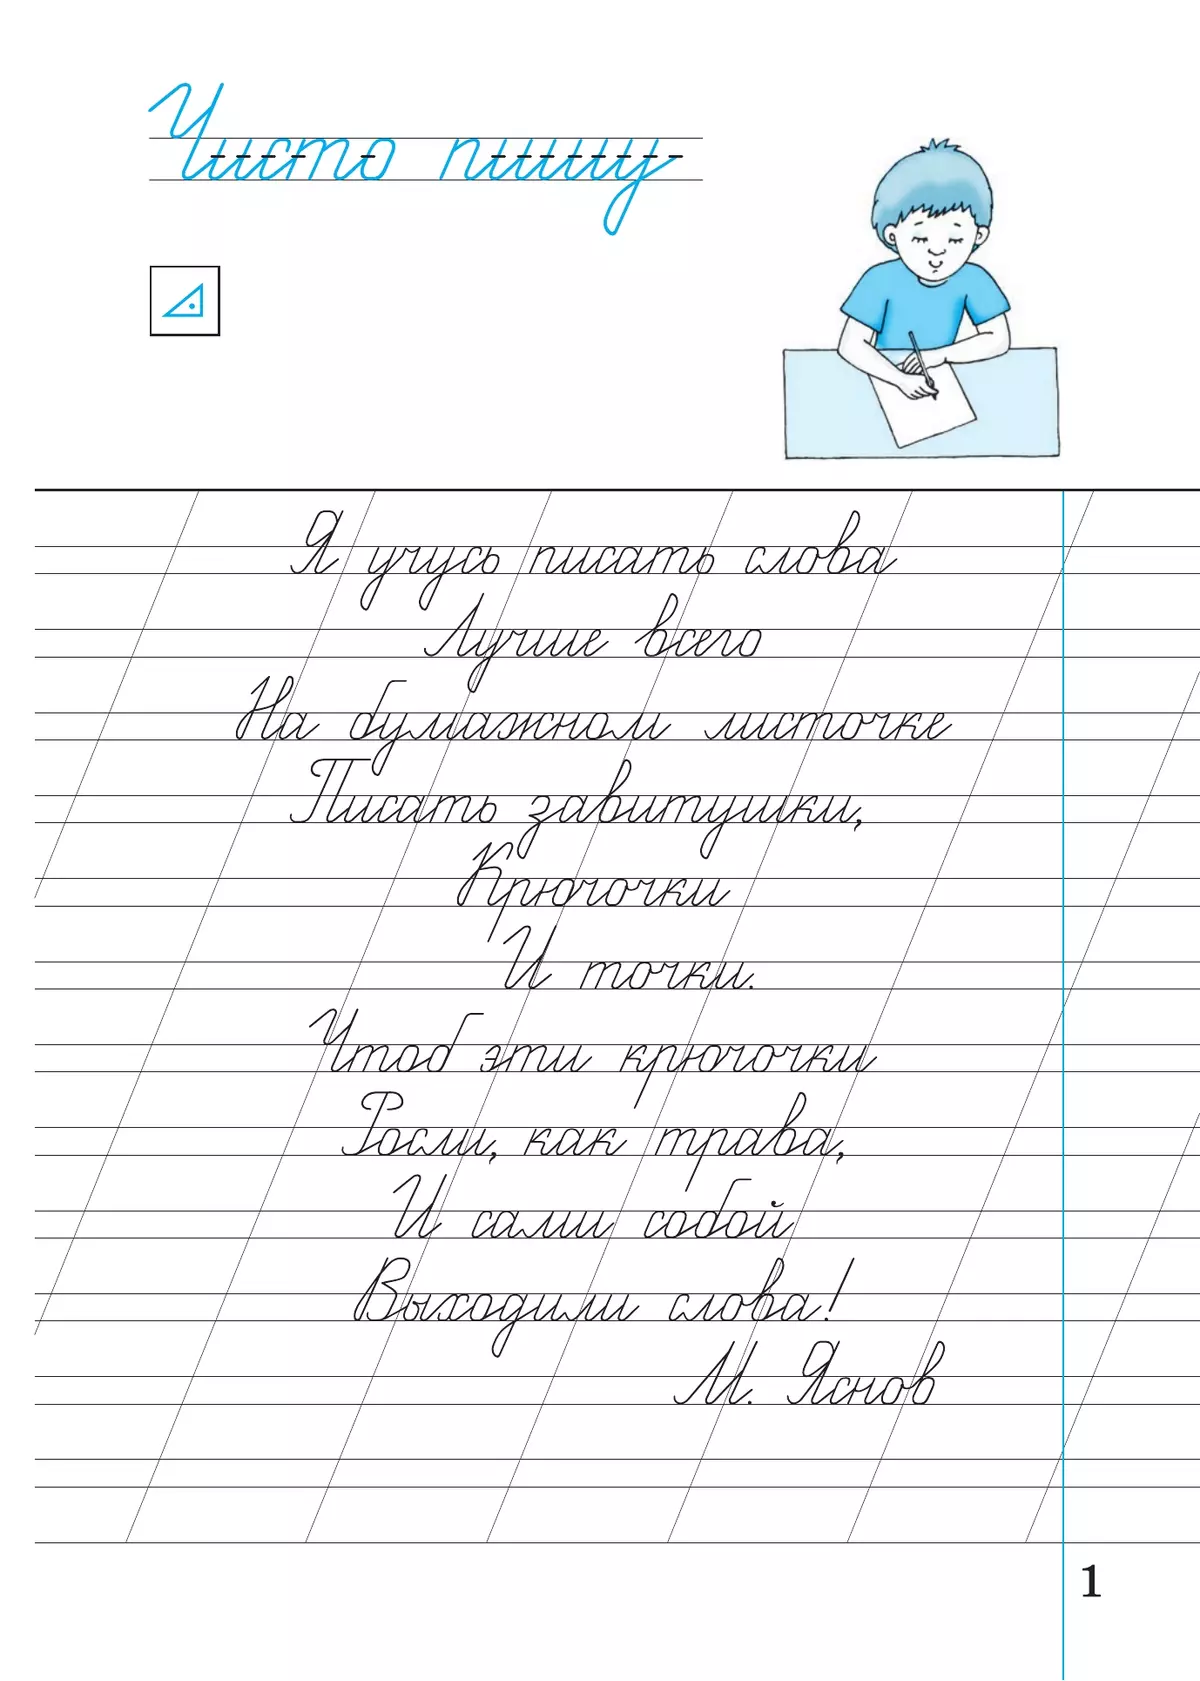 Чисто пишу
Я учусь писать слова
Лучше всего
На бумажном листочке
Писать завитушки,
Крючочки
И точки.
Чтоб эти крючочки
Росли, как трава,
И сами собой
Выходили слова!
М. Яснов
1